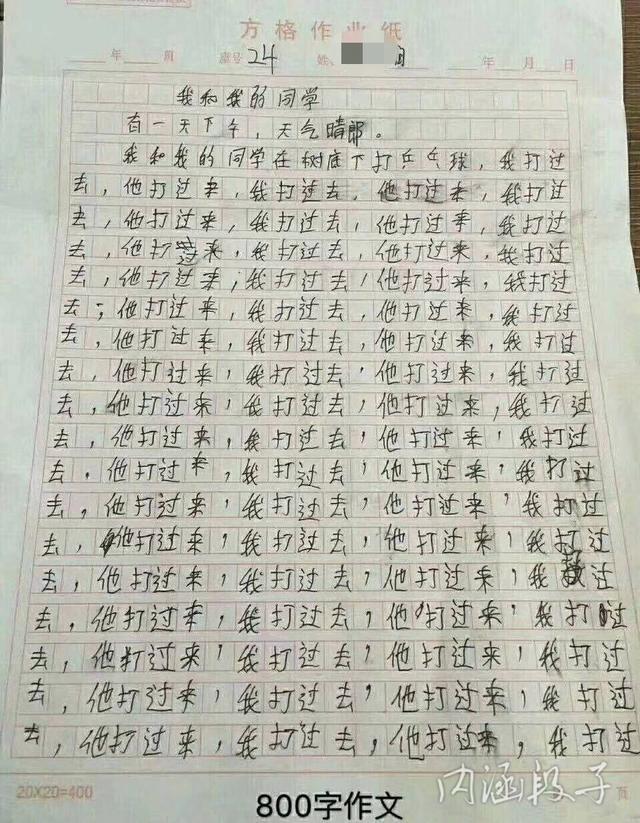 方格作业纸
年 班 座号 24 姓 年 月 日
我和我的同学
有一天下午，天气晴郎。
我和我的同学在树底下打乒乓球，我打过
去，他打过来，我打过去，他打过来，我打过
去，他打过来，我打过去，他打过来，我打过
去，他打过来，我打过去，他打过来，我打过
去，他打过来，我打过去，他打过来，我打过
去，他打过来，我打过去，他打过来，我打过
去，他打过来，我打过去，他打过来，我打过
去，他打过来，我打过去，他打过来，我打过
去，他打过来，我打过去，他打过来，我打过
去，他打过来，我打过去，他打过来，我打过
去，他打过来，我打过去，他打过来，我打过
去，他打过来，我打过去，他打过来，我打过
去，他打过来，我打过去，他打过来，我打过
去，他打过来，我打过去，他打过来，我过
去，他打过来，我打过去，他打过来，我打过
去，他打过来，我打过去，他打过来，我打过
去，他打过来，我打过去，他打过来，我打过
去，他打过来，我打过去，他打过来，我打过
20X20=400 页
内涵段子
800字作文